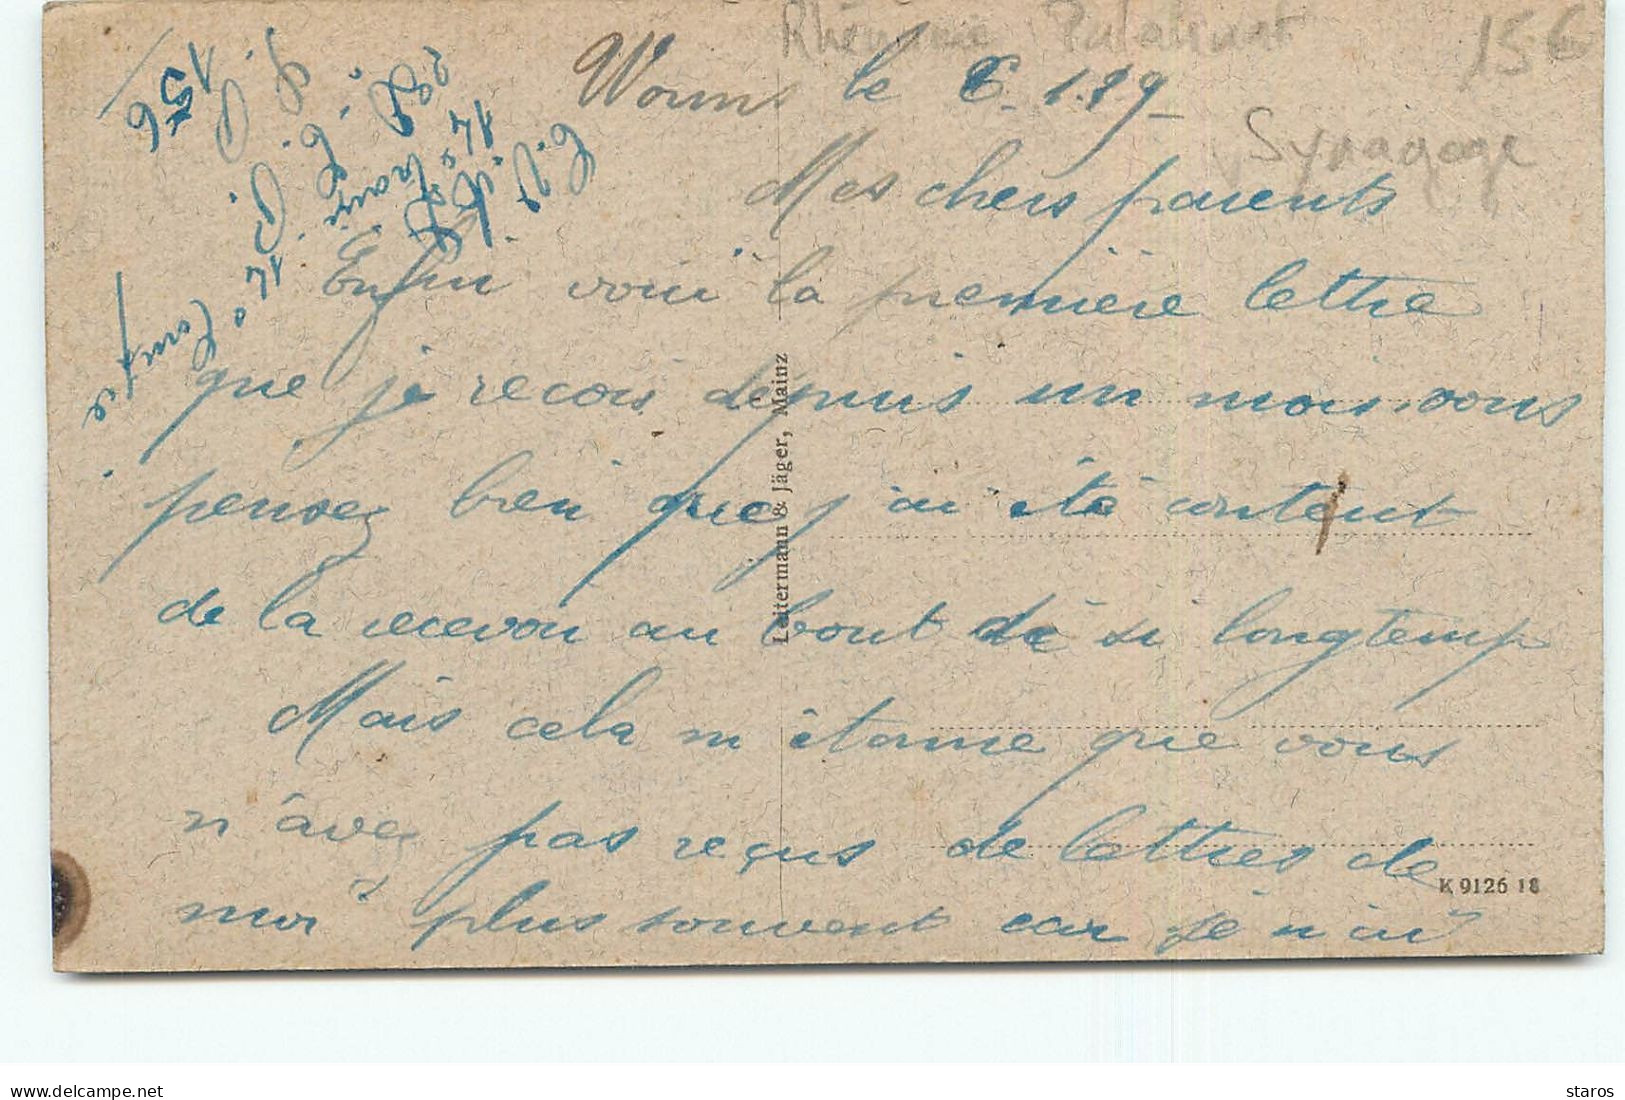 Rhénanie Palatinat
156
Synagoge
Worms le 6.1.19
Mes chers parents
Enfin voici la première lettre
que je recois depuis un mois. vous
pensez bien que j'ai été content
de la recevoir au bout de si longtemp
Mais cela m'étonne que vous
n'avez pas reçus de lettres de
moi plus souvent car je n'ai
14e Compie
S. P. 156
Leitermann & Jäger, Mainz
K 9126 18
staros
Delcampe.net